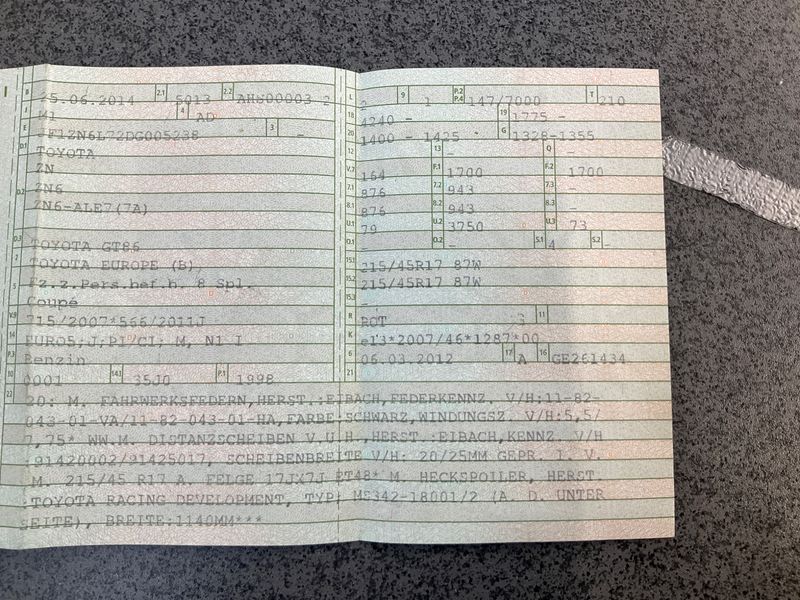 B 25.06.2014 2.1 5013 2.2 AHS00003 2 L 2 9 1 P.2 P.4 147/7000 T 210
J M1 4 AD 18 4240 - 19 1775 -
E JF1ZN6L72DG005238 3 - 20 1400 - 1425 - G 1328-1355
D.1 TOYOTA 12 - 13 - Q -
ZN V.7 164 F.1 1700 F.2 1700
D.2 ZN6 7.1 876 7.2 943 7.3 -
ZN6-ALE7(7A) 8.1 876 8.2 943 8.3 -
U.1 79 U.2 3750 U.3 73
D.3 TOYOTA GT86 O.1 - O.2 - S.1 4 S.2 -
2 TOYOTA EUROPE (B) 15.1 215/45R17 87W
5 Fz.z.Pers.bef.b. 8 Spl. 15.2 215/45R17 87W
Coupé 15.3 -
V.9 715/2007*566/2011J R ROT 3 11
14 EURO5;J;PI/CI; M, N1 I K e13*2007/46*1287*00
P.3 Benzin 6 06.03.2012 17 A 16 GE261434
10 0001 14.1 35J0 P.1 1998 21
22 20: M. FAHRWERKSFEDERN,HERST.:EIBACH,FEDERKENNZ. V/H:11-82-
043-01-VA/11-82-043-01-HA,FARBE:SCHWARZ,WINDUNGSZ. V/H:5,5/
7,75* WW.M. DISTANZSCHEIBEN V.U.H.,HERST.:EIBACH,KENNZ. V/H
:91420002/91425017, SCHEIBENBREITE V/H: 20/25MM GEPR. I. V.
M. 215/45 R17 A. FELGE 17JX7J ET48* M. HECKSPOILER, HERST.
:TOYOTA RACING DEVELOPMENT, TYP: MS342-18001/2 (A. D. UNTER
SEITE), BREITE:1140MM***